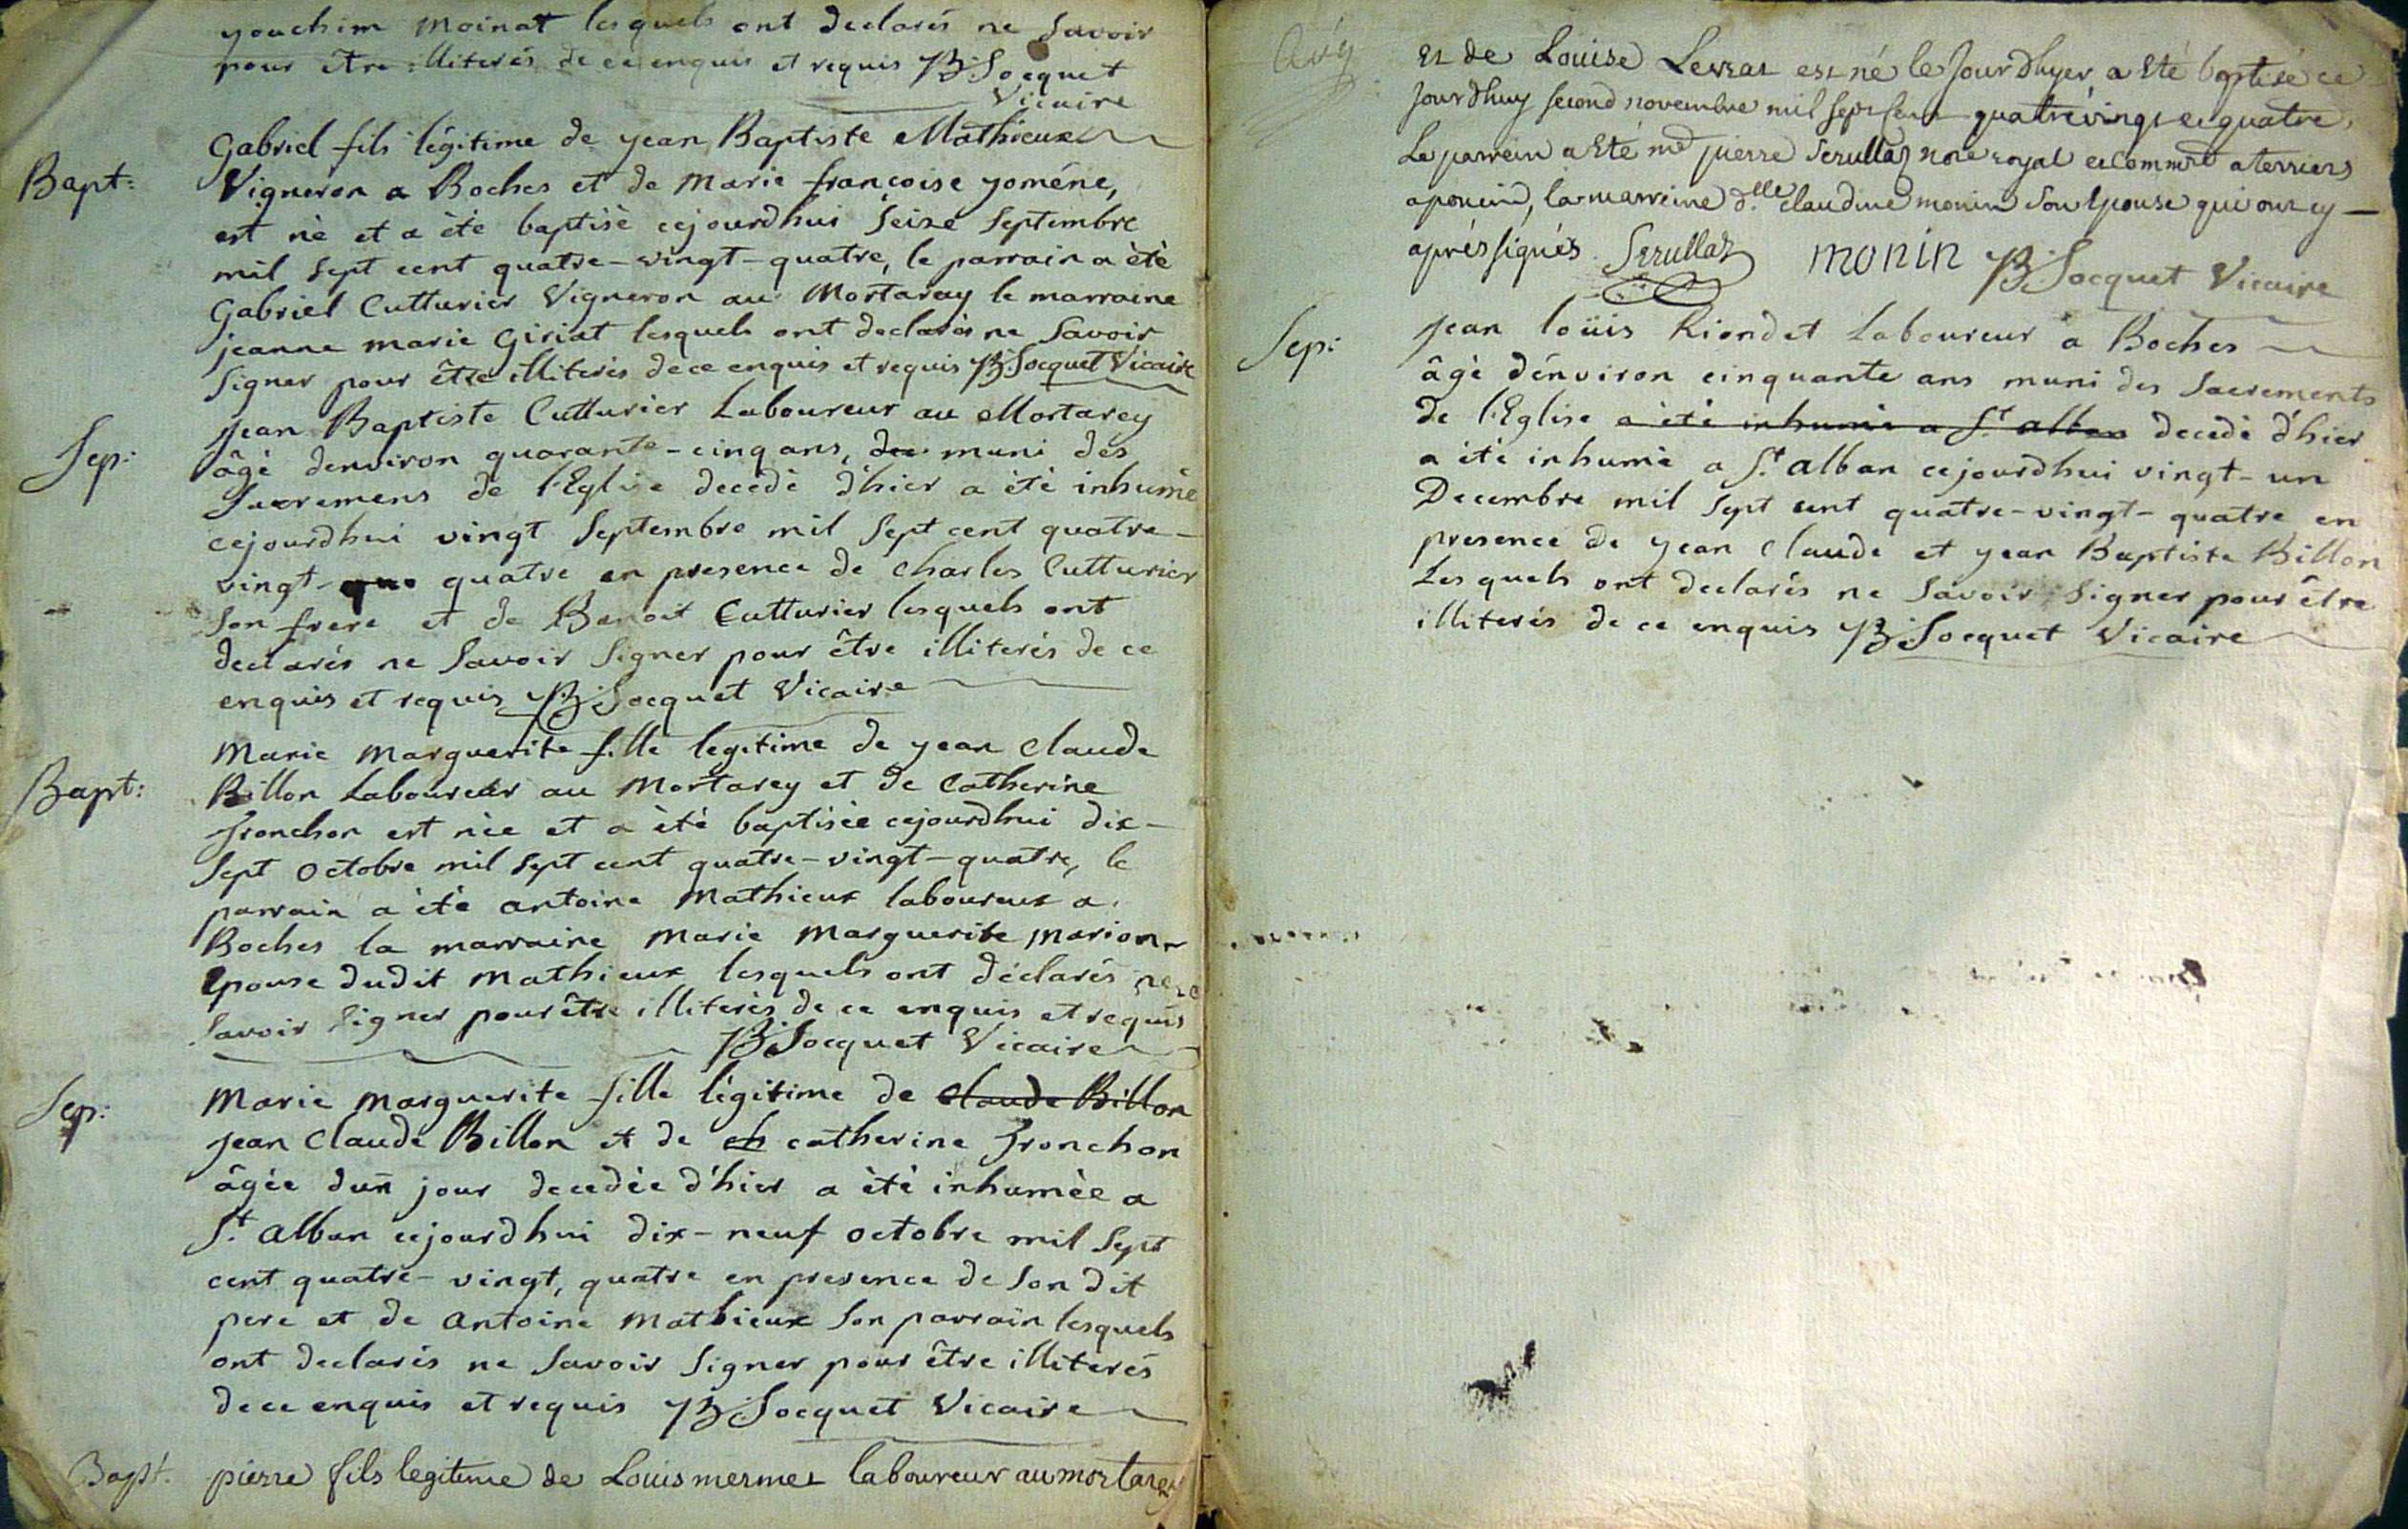 youchim Moinat lesquels ont declarés ne Savoir
pour être illiterés de ce enquis et requis B: Jocquet
Vicaire
Bapt: Gabriel fils légitime de yean Baptiste Mathieux
Vigneron a Boches et de Marie françoise yoméne,
est nè et a ètè baptisè cejourdhui Seize Septembre
mil Sept cent quatre-vingt-quatre, le parrain a ètè
Gabriel Cutturier Vigneron au Mortaray le marraine
jeanne marie Giriat lesquels ont declarès ne Savoir
Signer pour être illiterés de ce enquis et requis B: Jocquet Vicaire
Sep: Jean Baptiste Cutturier Laboureur au Mortarey
âgè denviron quarante-cinq ans, muni des
Sacremens de l'Eglise decedè d'hier a ètè inhumè
cejourdhui vingt Septembre mil Sept cent quatre-
vingt- quatre en presence de Charles Cutturier
Son frere et de Benoit Cutturier lesquels ont
declarés ne Savoir Signer pour être illiterés de ce
enquis et requis B: Jocquet Vicaire
Bapt: Marie Marguerite fille legitime de yean Claude
Billon Laboureur au Mortarey et de Catherine
Fronchon est nèe et a ètè baptisèe cejourdhui dix-
Sept octobre mil Sept cent quatre-vingt-quatre, le
parrain a ètè antoine Mathieux laboureur a
Boches la marraine Marie Marguerite Marion
Epouse dudit Mathieux lesquels ont déclarés ne
Savoir Signer pour être illiterès de ce enquis et requis
B: Jocquet Vicaire
Sep: Marie Marguerite fille légitime de Claude Billon
Jean Claude Billon et de ch catherine Fronchon
âgèe dun jour decedèe d'hier a ètè inhumèe a
St. Alban cejourdhui dix-neuf octobre mil Sept
cent quatre-vingt, quatre en presence de Son dit
pere et de Antoine Mathieux Son parrain lesquels
ont declarés ne Savoir Signer pour être illiterés
de ce enquis et requis B: Jocquet Vicaire
Bapt. pierre fils legitime de Louis mermet laboureur au mortarey
Et de Louise Levrat est né le Jour dhyer, a Eté baptisé ce
Jourdhuy second novembre mil sept cent quatrevingt et quatre,
Le parrein a Eté me pierre Serullaz nore royal et commre a terriers
a poncin, la marreine d.elle claudine monin Son Epouse qui ont cy —
aprés signés Serullaz monin B: Jocquet Vicaire
Sep: Jean loüis Riondet Laboureur a Boches
âgè d'énviron cinquante ans muni des Sacrements
de l'Eglise a ètè inhumè a St. alban decedè d'hier
a ètè inhumè a St. Alban cejourdhui vingt-un
Decembre mil Sept cent quatre-vingt-quatre en
presence de yean Claude et yean Baptiste Billon
Lesquels ont declarés ne Savoir Signer pour être
illiterés de ce enquis B: Jocquet Vicaire